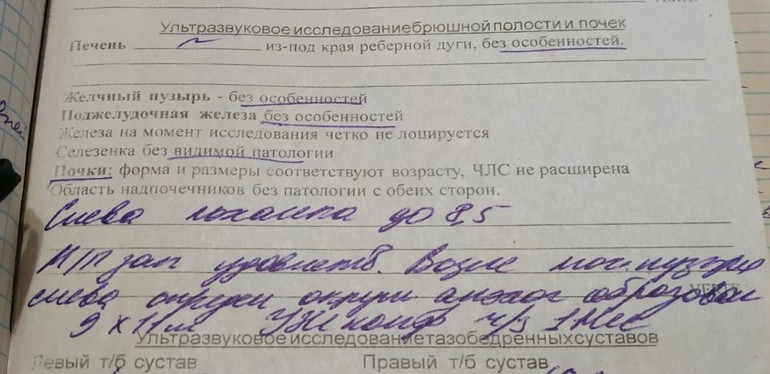 Ультразвуковое исследованиебрюшной полости и почек
Печень ~ из-под края реберной дуги, без особенностей.
Желчный пузырь - без особенностей
Поджелудочная железа без особенностей
Железа на момент исследования четко не лоцируется
Селезенка без видимой патологии
Почки: форма и размеры соответствуют возрасту, ЧЛС не расширена
Область надпочечников без патологии с обеих сторон.
Слева лоханка до 8,5
М/п зап удовлетв. Возле моч.пузыря
слева определ округл анэхог образован
9 х 11 мм УЗИ почек ч/з 1 мес
Ультразвуковое исследованиетазобедренныхсуставов
Левый т/б сустав Правый т/б сустав